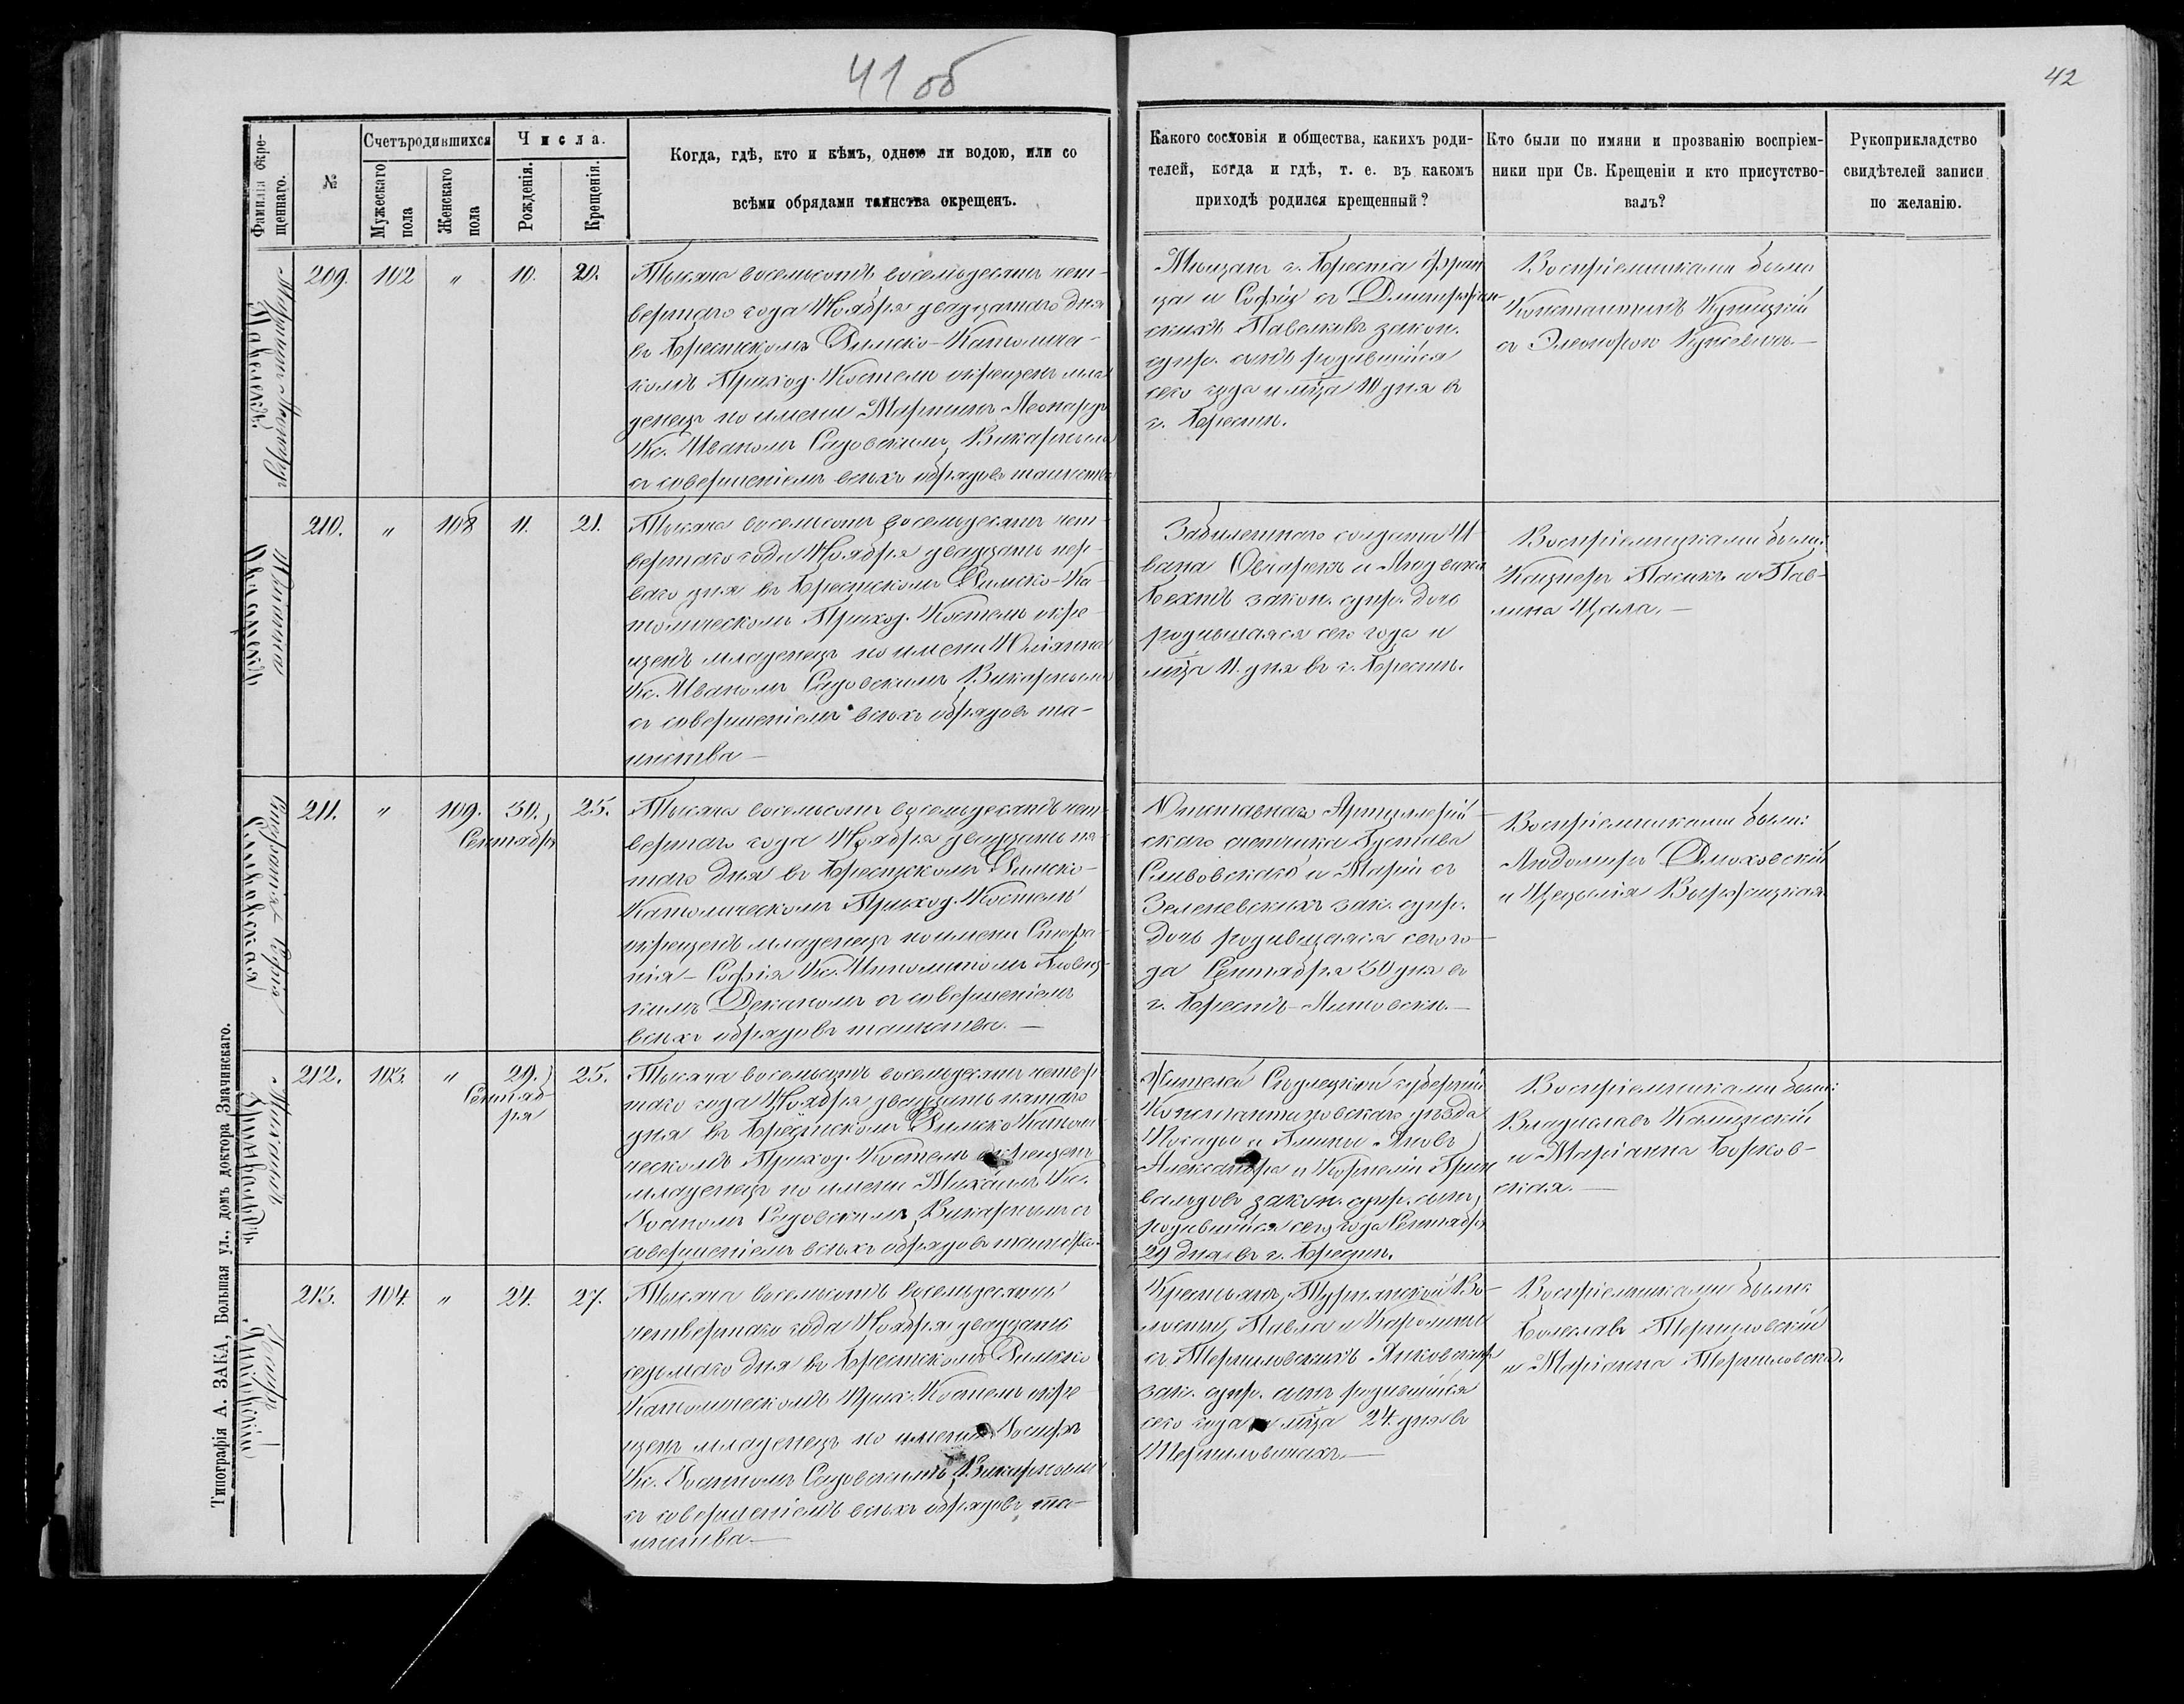 41 об
42
Фамилія окре-
щеннаго.
№
Счетъ родившихся
Мужескаго
пола
Женскаго
пола
Числа.
Рожденія.
Крещенія.
Когда, гдѣ, кто и кѣмъ, одною ли водою, или со
всѣми обрядами таинства окрещенъ.
Какого сословія и общества, какихъ роди-
телей, когда и гдѣ, т. е. въ какомъ
приходѣ родился крещенный?
Кто были по имяни и прозванію воспріем-
ники при Св. Крещеніи и кто присутство-
валъ?
Рукоприкладство
свидѣтелей записи
по желанію.
Мартинъ Леонардъ
209. 102 " 10. 20.
Тысяча восемьсотъ восемьдесятъ чет-
вертаго года Ноября двадцатаго дня
въ Брестскомъ Римско-Католиче-
комъ Приход. Костелѣ окрещенъ мла
денецъ по имени Мартинъ Леонардъ
Кс. Иваномъ Садовскимъ Викарнымъ
съ совершеніемъ всѣхъ обрядовъ таинства
Мѣщанъ г. Бреста Фран
ца и Софіи съ
скихъ закон.
супр. сынъ родившійся
сего года и м‑ца 10 дня въ
г. Брестѣ.
Воспріемниками были
Константинъ
съ Элеонорою
Юліанна
210. " 108 11. 21.
Тысяча восемьсотъ восемьдесятъ чет-
вертаго года Ноября двадцать пер-
ваго дня въ Брестскомъ Римско-Ка-
толическомъ Приход. Костелѣ окре
щенъ младенецъ по имени Юліанна
Кс. Иваномъ Садовскимъ Викарнымъ
съ совершеніемъ всѣхъ обрядовъ та-
инства —
Забилетнаго солдата И
вана и
закон. супр. дочь
родившаяся сего года и
м‑ца 11 дня въ г. Брестѣ.
Воспріемниками были:
и Пав-
лина
Стефанія-Софія
Сливовская
211. " 109. 30. 25.
Сентября
Тысяча восемьсотъ восемьдесятъ чет-
вертаго года Ноября двадцать пя-
таго дня въ Брестскомъ Римско-
Католическомъ Приход. Костелѣ
окрещенъ младенецъ по имени Стефа-
нія-Софія Кс.
Деканомъ съ совершеніемъ
всѣхъ обрядовъ таинства. —
Артиллерій-
скаго Густава
Сливовскаго и Маріи съ
Зелепевскихъ зак. супр.
дочь родившаяся сего го-
да Сентября 30 дня въ
г. Брестъ-Литовскѣ. —
Воспріемниками были:
Людомиръ Дмоховскій
и Цецылія
Михаилъ
212. 103. " 29. 25.
Сентяб-
ря
Тысяча восемьсотъ восемьдесятъ четвер
таго года Ноября двадцать пятаго
дня въ Брестскомъ Римско Католи
ческомъ Приход. Костелѣ окрещенъ
младенецъ по имени Михаилъ Кс.
Іоаномъ Садовскимъ Викарнымъ съ
совершеніемъ всѣхъ обрядовъ таинства.
Жителей Сѣдлецкой губерніи
Константиновскаго уѣзда
Посады и Гмины Яновъ
Александра и Корнеліи Грин
вальдовъ закон. супр. сынъ
родившійся сего года Сентября
29 дня въ г. Брестѣ.
Воспріемниками были:
Владиславъ
и Маріанна Борков-
ская. —
Іосифъ
Янковскій
213. 104. " 24. 27.
Тысяча восемьсотъ восемьдесятъ
четвертаго года Ноября двадцать
седьмаго дня въ Брестскомъ Римско
Католическомъ Прих. Костелѣ окре
щенъ младенецъ по имени Іосифъ
Кс. Іоанномъ Садовскимъ Викарнымъ
съ совершеніемъ всѣхъ обрядовъ та-
инства. —
Крестьянъ Турнянской Во-
лости, Павла и Каролины
съ Терпиловскихъ Янковскихъ
зак. супр. сынъ родившійся
сего года и м‑ца 24 дня въ
Терпиловичахъ. —
Воспріемниками были:
Болеславъ Терпиловскій
и Маріанна Терпиловская.
Типографія А. ЗАКА, Большая ул., домъ доктора Значинскаго.